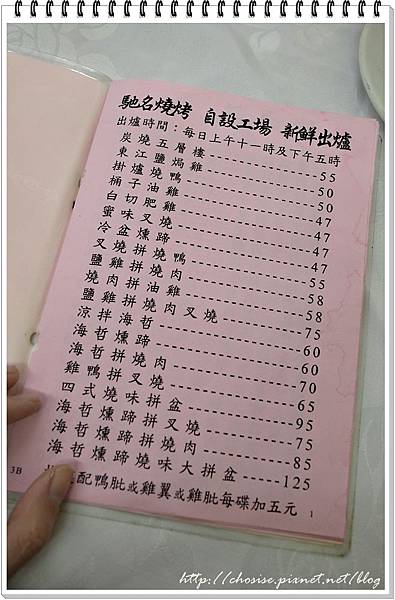 馳名燒烤 自設工場 新鮮出爐
出爐時間：每日上午十一時及下午五時
炭燒五層樓--------------------55
東江鹽焗雞--------------------50
掛爐燒鴨--------------------50
桶子油雞--------------------47
白切肥雞--------------------47
蜜味叉燒--------------------47
冷盆燻蹄--------------------47
叉燒拼燒鴨--------------------55
鹽雞拼燒肉--------------------58
燒肉拼油雞--------------------58
鹽雞拼燒肉叉燒--------------75
涼拌海哲--------------------60
海哲燻蹄--------------------60
海哲拼燒肉--------------------70
雞鴨拼叉燒--------------------65
四式燒味拼盆----------------95
海哲燻蹄拼叉燒--------------75
海哲燻蹄拼燒肉--------------85
海哲燻蹄燒味大拼盆--------125
配鴨肶或雞翼或雞肶每碟加五元
1
3B
http://chosise.pixnet.net/blog